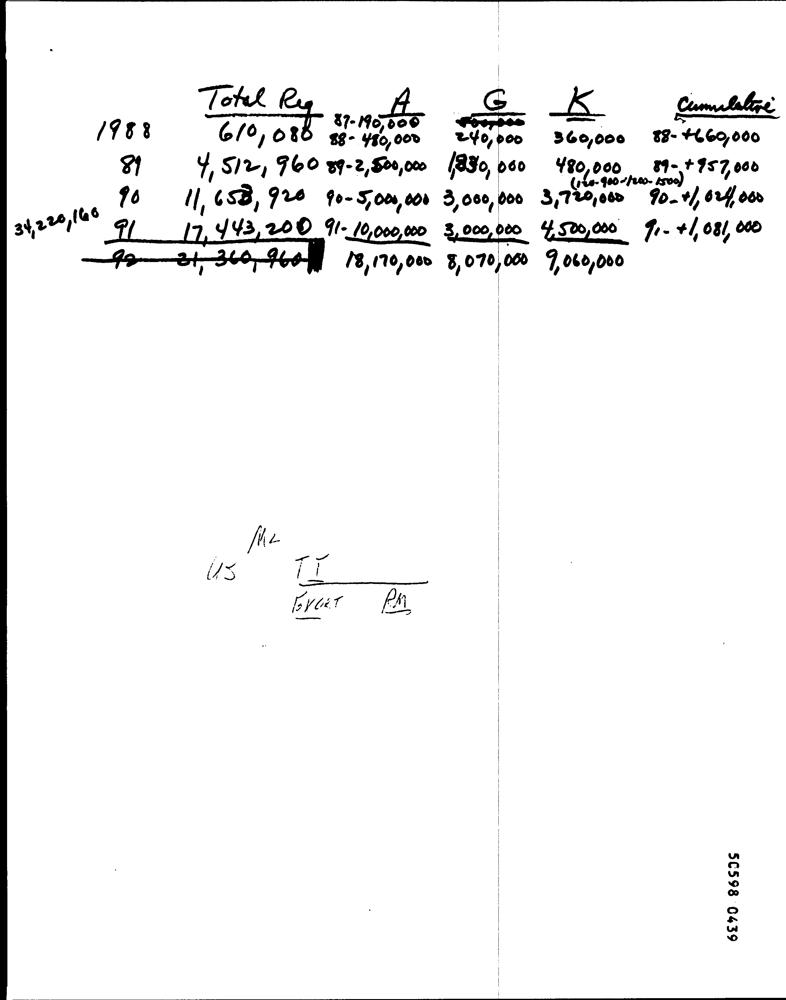 Total Req A G K Cumulative
87-190,000
1988 610,080 88-480,000 240,000 360,000 88-+660,000
89 4,512,960 89-2,500,000 1,830,000 480,000 89-+957,000
(120-900-1200-1500)
90 11,653,920 90-5,000,000 3,000,000 3,720,000 90-+1,024,000
34,220,160 91 17,443,200 91-10,000,000 3,000,000 4,500,000 91-+1,081,000
92 21,360,960 18,170,000 8,070,000 9,060,000
ML
US TI
PM
50598 0439